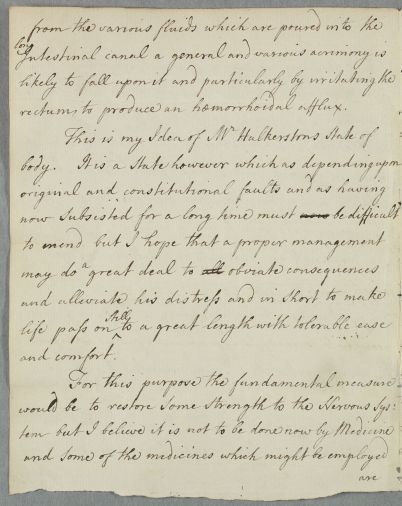 from the various fluids which are poured into the
long
Intestinal canal a general and various acrimony is
likely to fall upon it and particularly by irritating the
rectum, to produce an hæmorrhoidal afflux.
This is my Idea of Mr Halkerstons State of
body. It is a State however which as depending upon
original and constitutional faults and as having
now subsisted for a long time must now be difficult
to mend but I hope that a proper management
may do a great deal to all obviate consequences
and alleviate his distress and in short to make
life pass on Stilly to a great length with tolerable ease
and comfort.
For this purpose the fundamental measure
would be to restore some strength to the Nervous Sys:
tem but I believe it is not to be done now by Medicine
and some of the medicines which might be employed
are